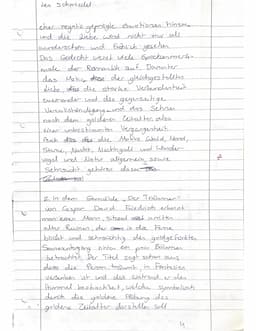 Lea Schmiedel
eher negativ geprägte Emotionen hinein
und die Liebe wird nicht nur als
wunderschön und fröhlich gesehen
Das Gedicht weist viele Epochenmerk-
male der Romantik auf. Darunter
das Motiv der gleichgestellten
Liebe, die starke Verbundenheit
zueinander und die gegenseitige
Vervollständigung und das Sehnen
nach dem goldenen Zeitalter, also
einer unbestimmten Vergangenheit
Auch die Motive Wald, Mond,
Sterne, Nacht, Nachtigall und Wander-
vogel und Natur allgemein, sowie
Sehnsucht gehören dazu
2. In dem Gemälde „Der Träumer"
von Caspar David Friedrich erkennt
man einen Mann, sitzend inmitten
alter Ruinen, der in die Ferne
blickt und sehnsüchtig den goldgefärbten
Sonnenuntergang hinter ein paar Bäumen
betrachtet. Der Titel sagt schon aus
dass die Person träumt, in Fantasien
versunken ist und das während er den
Himmel beobachtet, welche symbolisch
durch die goldene Färbung das
goldene Zeitalter darstellen soll
4